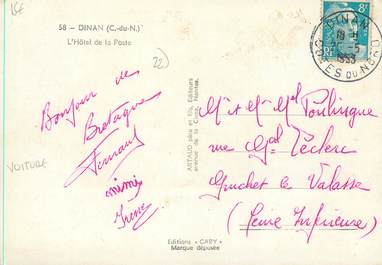 15€
58 — DINAN (C.-du-N.)
L'Hôtel de la Poste
22)
Bonjour de
Bretagne
Fernand
mimi
Irene
VOITURE
ARTAUD père et fils, Editeurs
avenue de la Nantes.
8F
RF
DINAN
1953
COTES DU NORD
Mr et Me Md Poulingue
rue Gal Leclerc
Gruchet le Valasse
(Seine Inférieure)
Editions "GABY"
Marque déposée